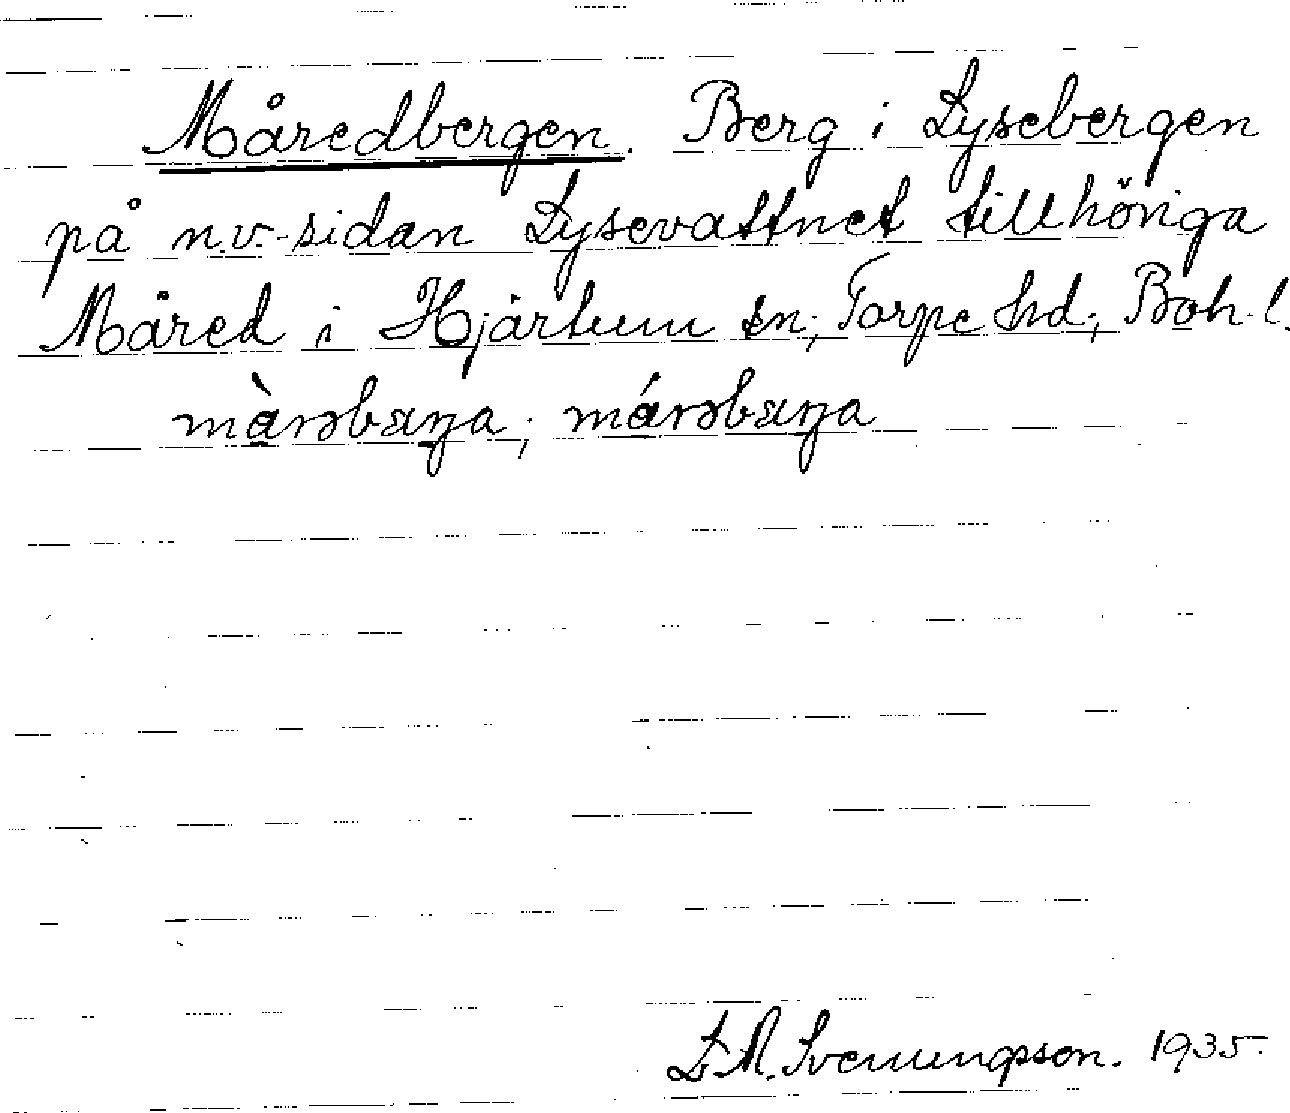 Måredbergen. Berg i Lysebergen
på n.v.-sidan Lysevattnet tillhöriga
Måred i Hjärtum sn; Torpe hd; Boh. l.
màrəbæŋa; márəbæŋa
L. M. Svenungsson. 1935.